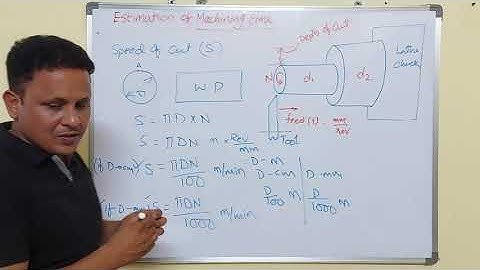 Estimation of Machining time
Speed of Cut (S)
Depth of Cut
W P
N
d1
d2
Lathe chuck
feed (t) - mm/rev
Tool
S = πD × N
S = πDN m × Rev/min
(If D-cm) S = πDN/100 m/min
D - m
D - cm
D/100 m
D - mm
D/1000 m
(If D-mm) S = πDN/1000 m/min